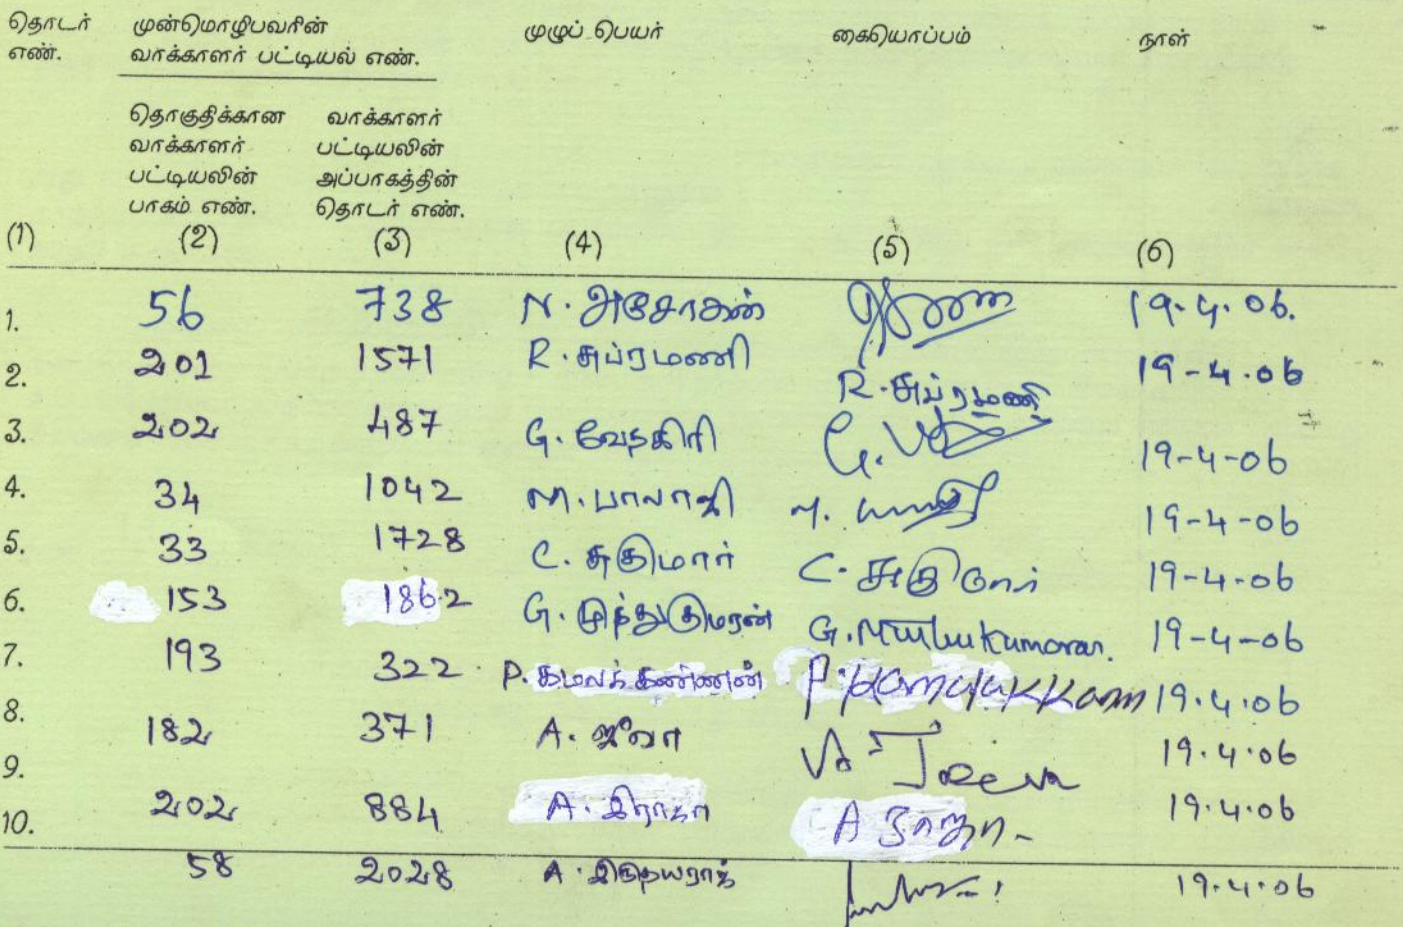 தொடர் முன்மொழிபவரின் முழுப் பெயர் கையொப்பம் நாள்
எண். வாக்காளர் பட்டியல் எண்.
தொகுதிக்கான வாக்காளர்
வாக்காளர் பட்டியலின்
பட்டியலின் அப்பாகத்தின்
பாகம் எண். தொடர் எண்.
(1) (2) (3) (4) (5) (6)
1. 56 738 N. அசோகன் 19.4.06.
2. 201 1571 R. சுப்ரமணி R. சுப்ரமணி 19-4.06
3. 202 487 G. வேதகிரி 19-4-06
4. 34 1042 M. பாலாஜி 19-4-06
5. 33 1728 C. சுகுமார் C. சுகுமார் 19-4-06
6. 153 1862 G. முத்துகுமரன் G. Muthukumaran. 19-4-06
7. 193 322 P. கமலக்கண்ணன் P. Kamalakkann 19.4.06
8. 182 371 A. ஜீவா Jeeva 19.4.06
9. 202 884 A. இராஜா A ராஜா 19.4.06
10. 58 2028 A. இருதயராஜ் 19.4.06